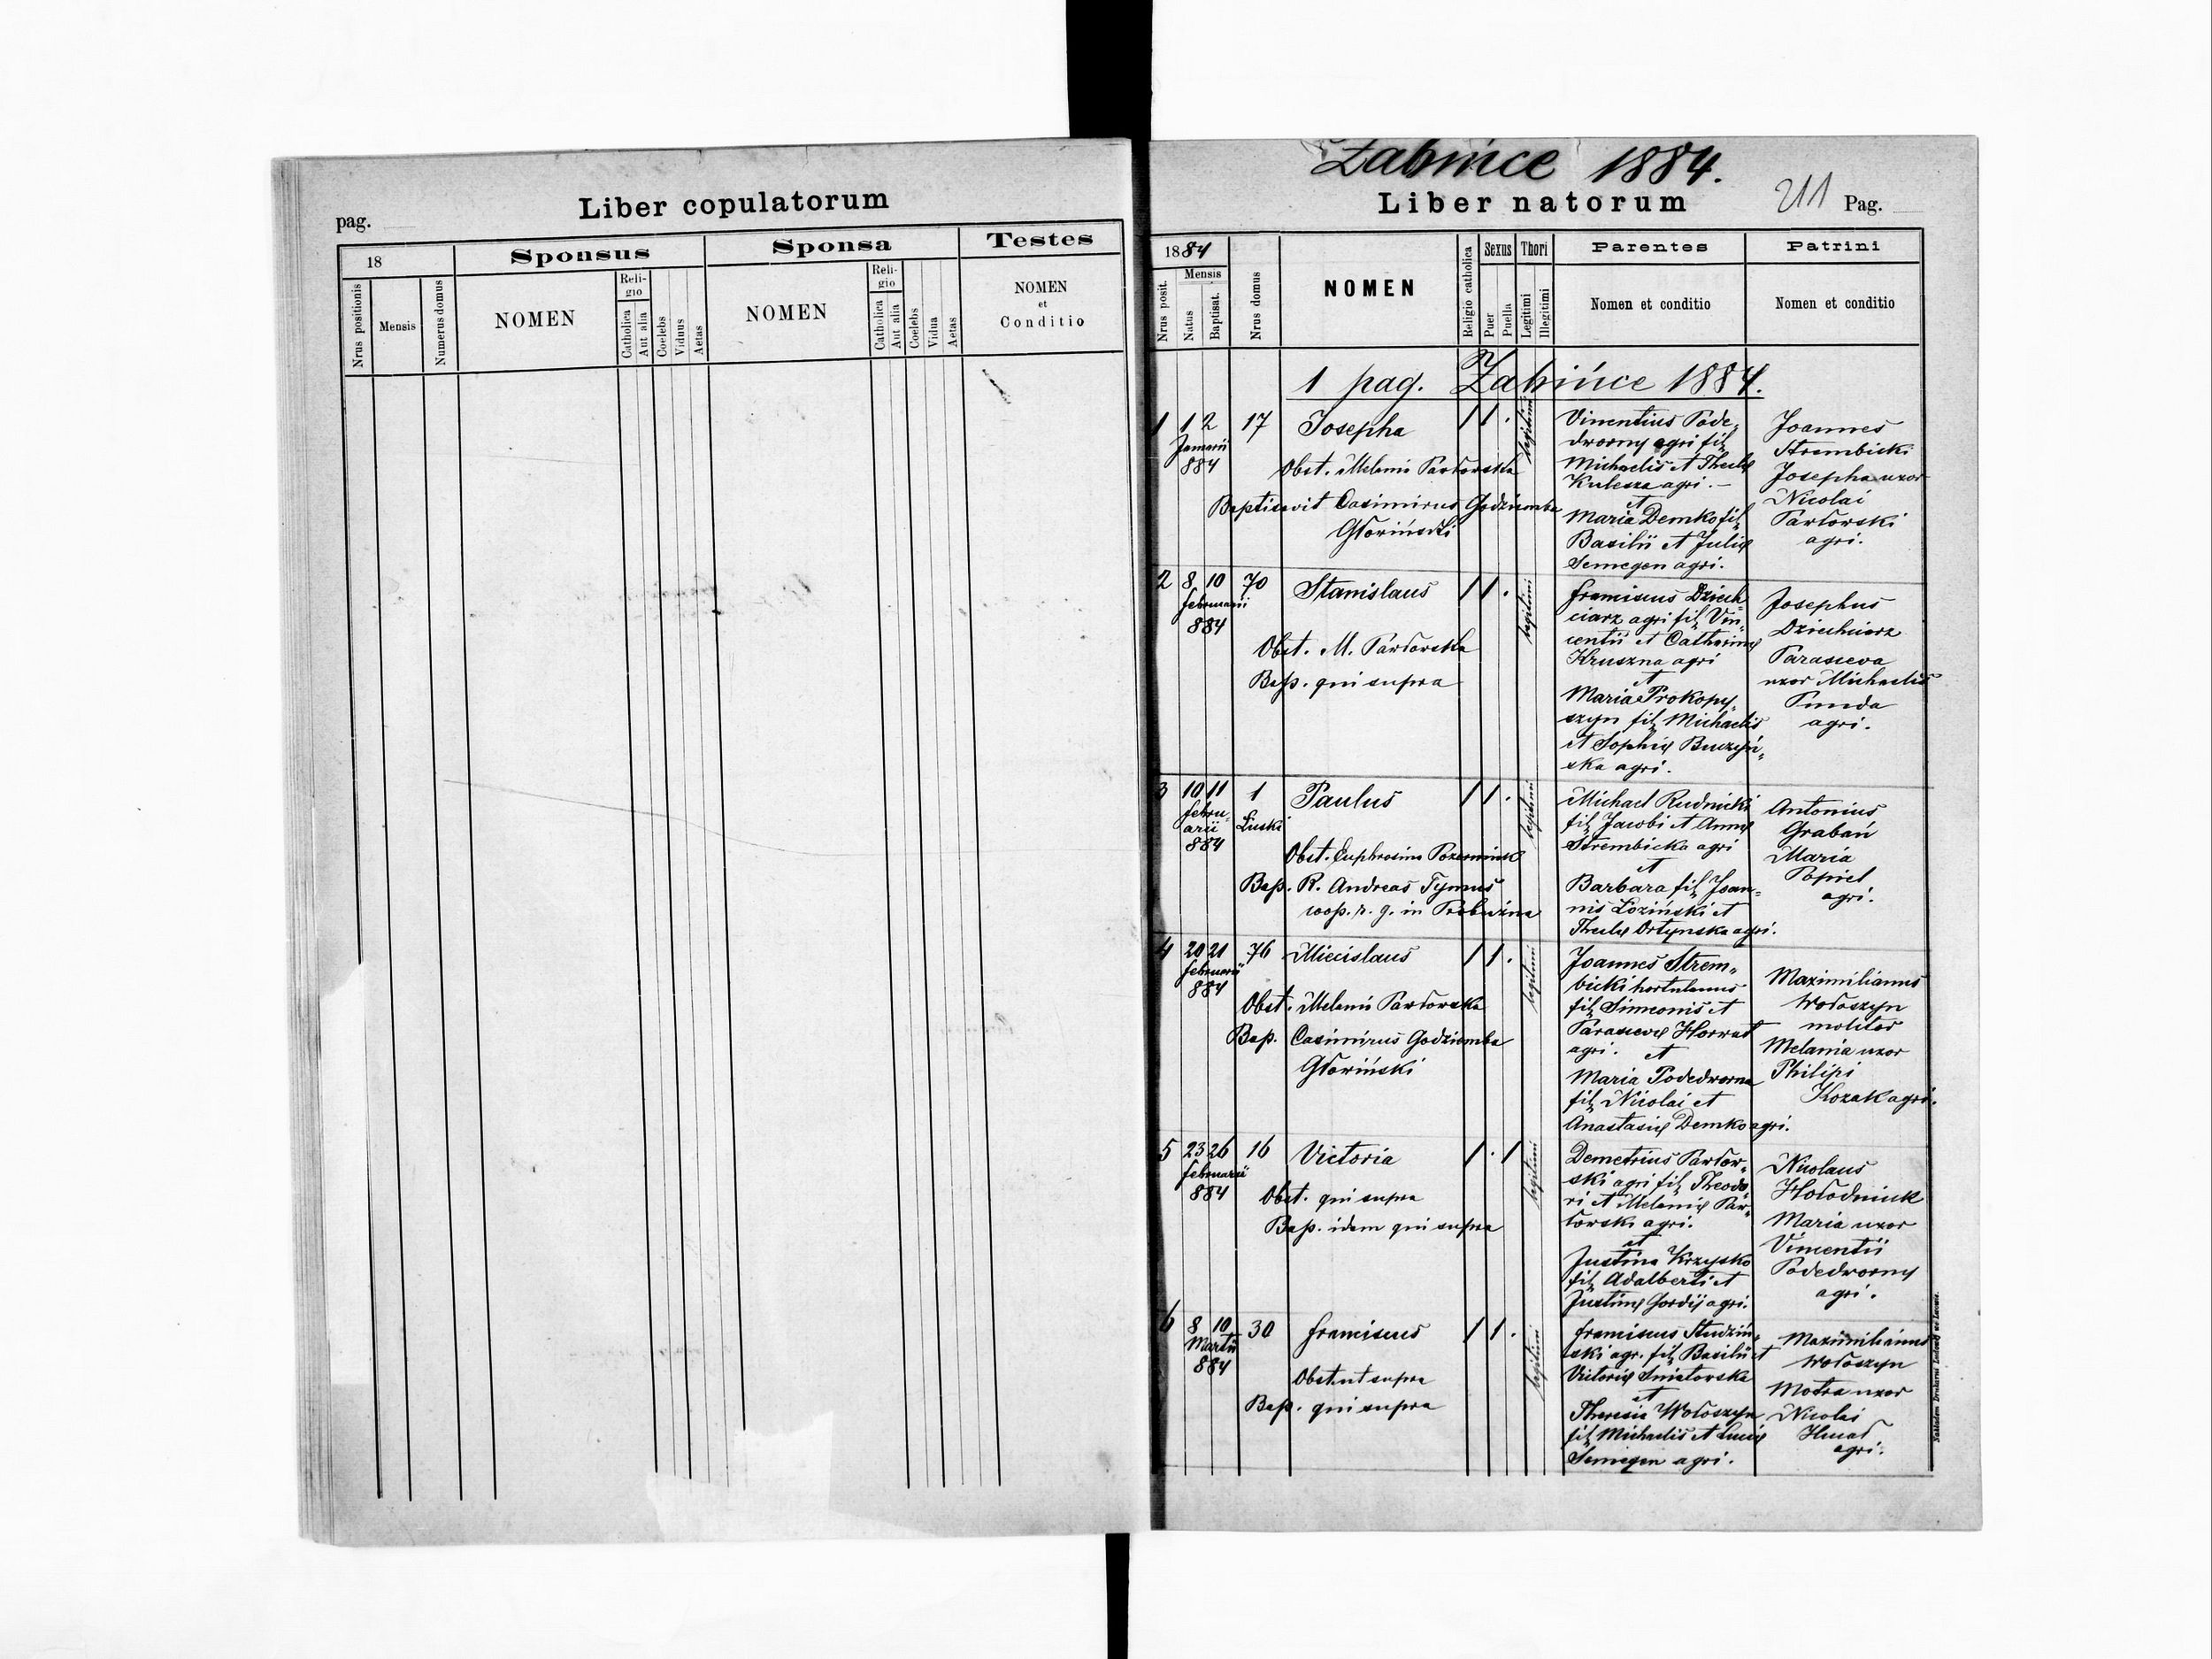 Liber copulatorum
pag.
18
Sponsus
Sponsa
Testes
Nrus positionis
Mensis
Numerus domus
NOMEN
Religio
Catholica
Aut alia
Coelebs
Viduus
Aetas
NOMEN
Religio
Catholica
Aut alia
Coelebs
Vidua
Aetas
NOMEN
et
Conditio
Żabińce 1884.
Liber natorum
211 Pag.
1884
Nrus posit.
Mensis
Natus
Baptisat.
Nrus domus
NOMEN
Religio catholica
Sexus
Puer
Puella
Thori
Legitimi
Illegitimi
Parentes
Nomen et conditio
Patrini
Nomen et conditio
1 pag. Żabińce 1884.
1 1 2 17 Josepha 1 1 .
Januarii
884
legitimi
Obst. Melania Parłorska
Baptisavit Casimirus Godziemba
Głowiński
Vincentius Pode-
dworny agri fil
Michaelis et Theclae
Kulesza agri. -
et
Maria Demko fil
Basilii et Juliae
Semegen agri.
Joannes
Strembicki
Josepha uxor
Nicolai
Parłorski
agri.
2 8 10 70 Stanislaus 1 1 .
Februarii
884
legitimi
Obst. M. Parłorska
Bap. qui supra
Franciscus Dziech-
ciarz agri fil Vin-
centii et Catharinae
Kruszna agri
et
Maria Prokopy-
szyn fil Michaelis
et Sophiae Buczyń-
ska agri.
Josephus
Dziechciarz
Parasceva
uxor Michaelis
Punda
agri.
3 10 11 1 Paulus 1 1 .
Febru-
arii
884
legitimi
Obst. Euphrosina
Bap. R. Andreas Tymus
coop. r. g. in Probużna
Michael Rudnicki
fil Jacobi et Annae
Strembicka agri
et
Barbara fil Joan-
nis Łoziński et
Theclae Ortynska agri.
Antonius
Grabań
Maria
Popiel
agri.
4 20 21 76 Miecislaus 1 1 .
Februarii
884
legitimi
Obst. Melania Parłorska
Bap. Casimirus Godziemba
Głowiński
Joannes Strem-
bicki hortulanus
fil Simeonis et
Parascevae Horwat
agri. et
Maria Podedworna
fil Nicolai et
Anastasiae Demko agri.
Maximilianus
Wołoszyn
molitor
Melania uxor
Philipi
Kozak agri.
5 23 26 16 Victoria 1 . 1
Februarii
884
legitimi
Obst. qui supra
Bap. idem qui supra
Demetrius Parłor-
ski agri fil Theodo-
ri et Melaniae Par-
łorski agri.
et
Justina Krzysko
fil Adalberti et
Justinae Gordij agri.
Nicolaus
Hołodniuk
Maria uxor
Vincentii
Podedworny
agri.
6 8 10 30 Franciscus 1 1 .
Martii
884
legitimi
Obst. ut supra
Bap. qui supra
Franciscus Studziń-
ski agr. fil Basilii et
Victoriae
et
Theresia Wołoszyn
fil Michaelis et Luciae
Semegen agri.
Maximilianus
Wołoszyn
Motra uxor
Nicolai
agri.